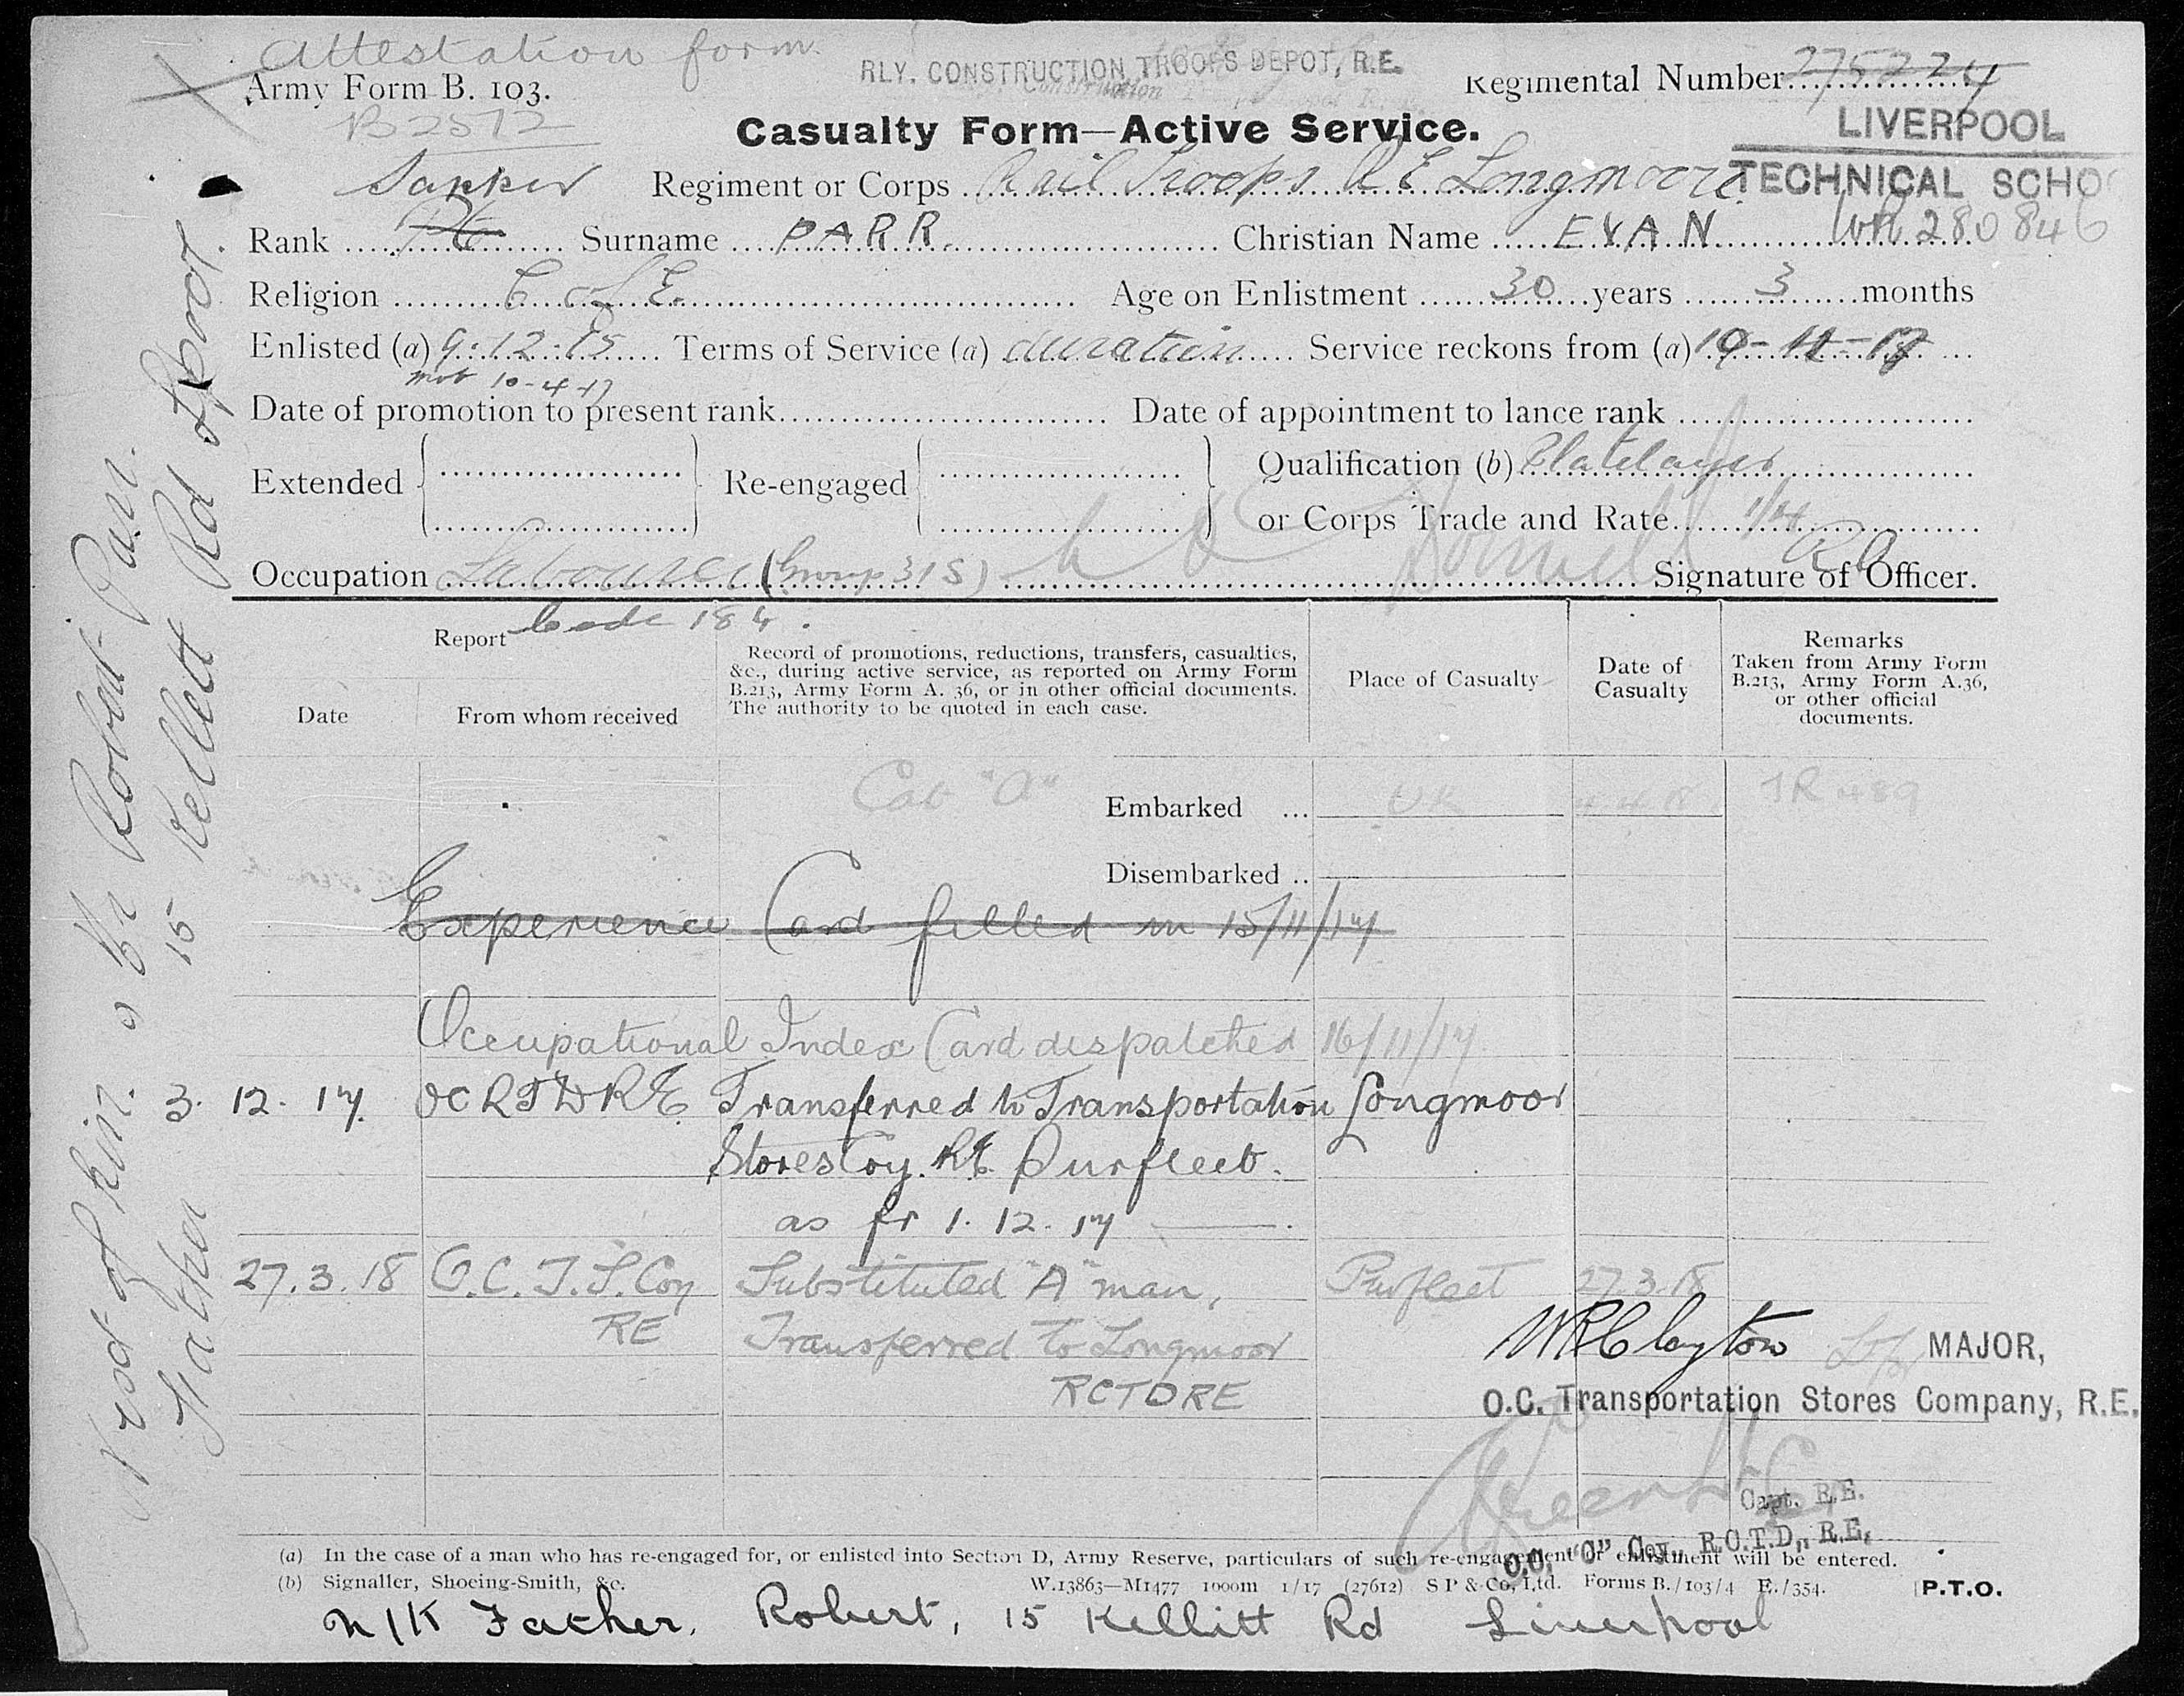 Attestation form
RLY. CONSTRUCTION TROOPS DEPOT, R.E.
Army Form B. 103.
Regimental Number 275224
B2572
LIVERPOOL
TECHNICAL SCHO
Casualty Form—Active Service.
Sapper Regiment or Corps Rail Troops R E Longmoore
Rank Pte Surname PARR Christian Name EVAN WR 280846
Religion C of E. Age on Enlistment 30 years 3 months
Enlisted (a) 9.12.15 Terms of Service (a) duration Service reckons from (a)
mob 10-4-17
Date of promotion to present rank Date of appointment to lance rank
Extended Re-engaged Qualification (b) Platelayer
or Corps Trade and Rate
Occupation Labourer (Group 31 S) Signature of Officer.
Code 184.
Report
Date
From whom received
Record of promotions, reductions, transfers, casualties,
&c., during active service, as reported on Army Form
B.213, Army Form A. 36, or in other official documents.
The authority to be quoted in each case.
Place of Casualty
Date of
Casualty
Remarks
Taken from Army Form
B.213, Army Form A.36,
or other official
documents.
Cat "A"
Embarked ... UK
Disembarked ..
Experience Card filled in 15/11/17
Occupational Index Card dispatched 16/11/17
3. 12. 17. OC RTDRE Transferred to Transportation Longmoor
Stores Coy. RE Purfleet.
as fr 1. 12. 17
27.3.18 O.C. T.S. Coy Substituted "A" man, Purfleet 27.3.18
RE Transferred to Longmoor
RCTDRE
WR Clayton MAJOR,
O.C. Transportation Stores Company, R.E.
Capt. R.E.
O.C. "C" Coy., R.C.T.D., R.E.
(a) In the case of a man who has re-engaged for, or enlisted into Section D, Army Reserve, particulars of such re-engagement or enlistment will be entered.
(b) Signaller, Shoeing-Smith, &c. W.13863—M1477 1000m 1/17 (27612) S P & Co, Ltd. Forms B./103/4 E./354. P.T.O.
N/K Father, Robert, 15 Kellitt Rd Liverpool
Next of kin. Mr Robert Parr.
Father 15 Kellett Rd L'pool.